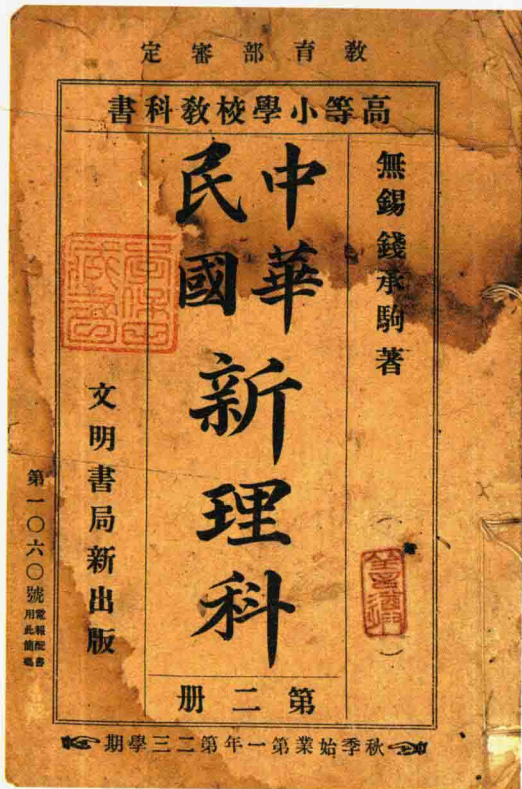 教育部審定
高等小學校教科書
無錫錢承駒著
中華
民國
新理科
第二冊
文明書局新出版
第一〇六〇號
電報配書
用此簡碼
秋季始業第一年第二三學期